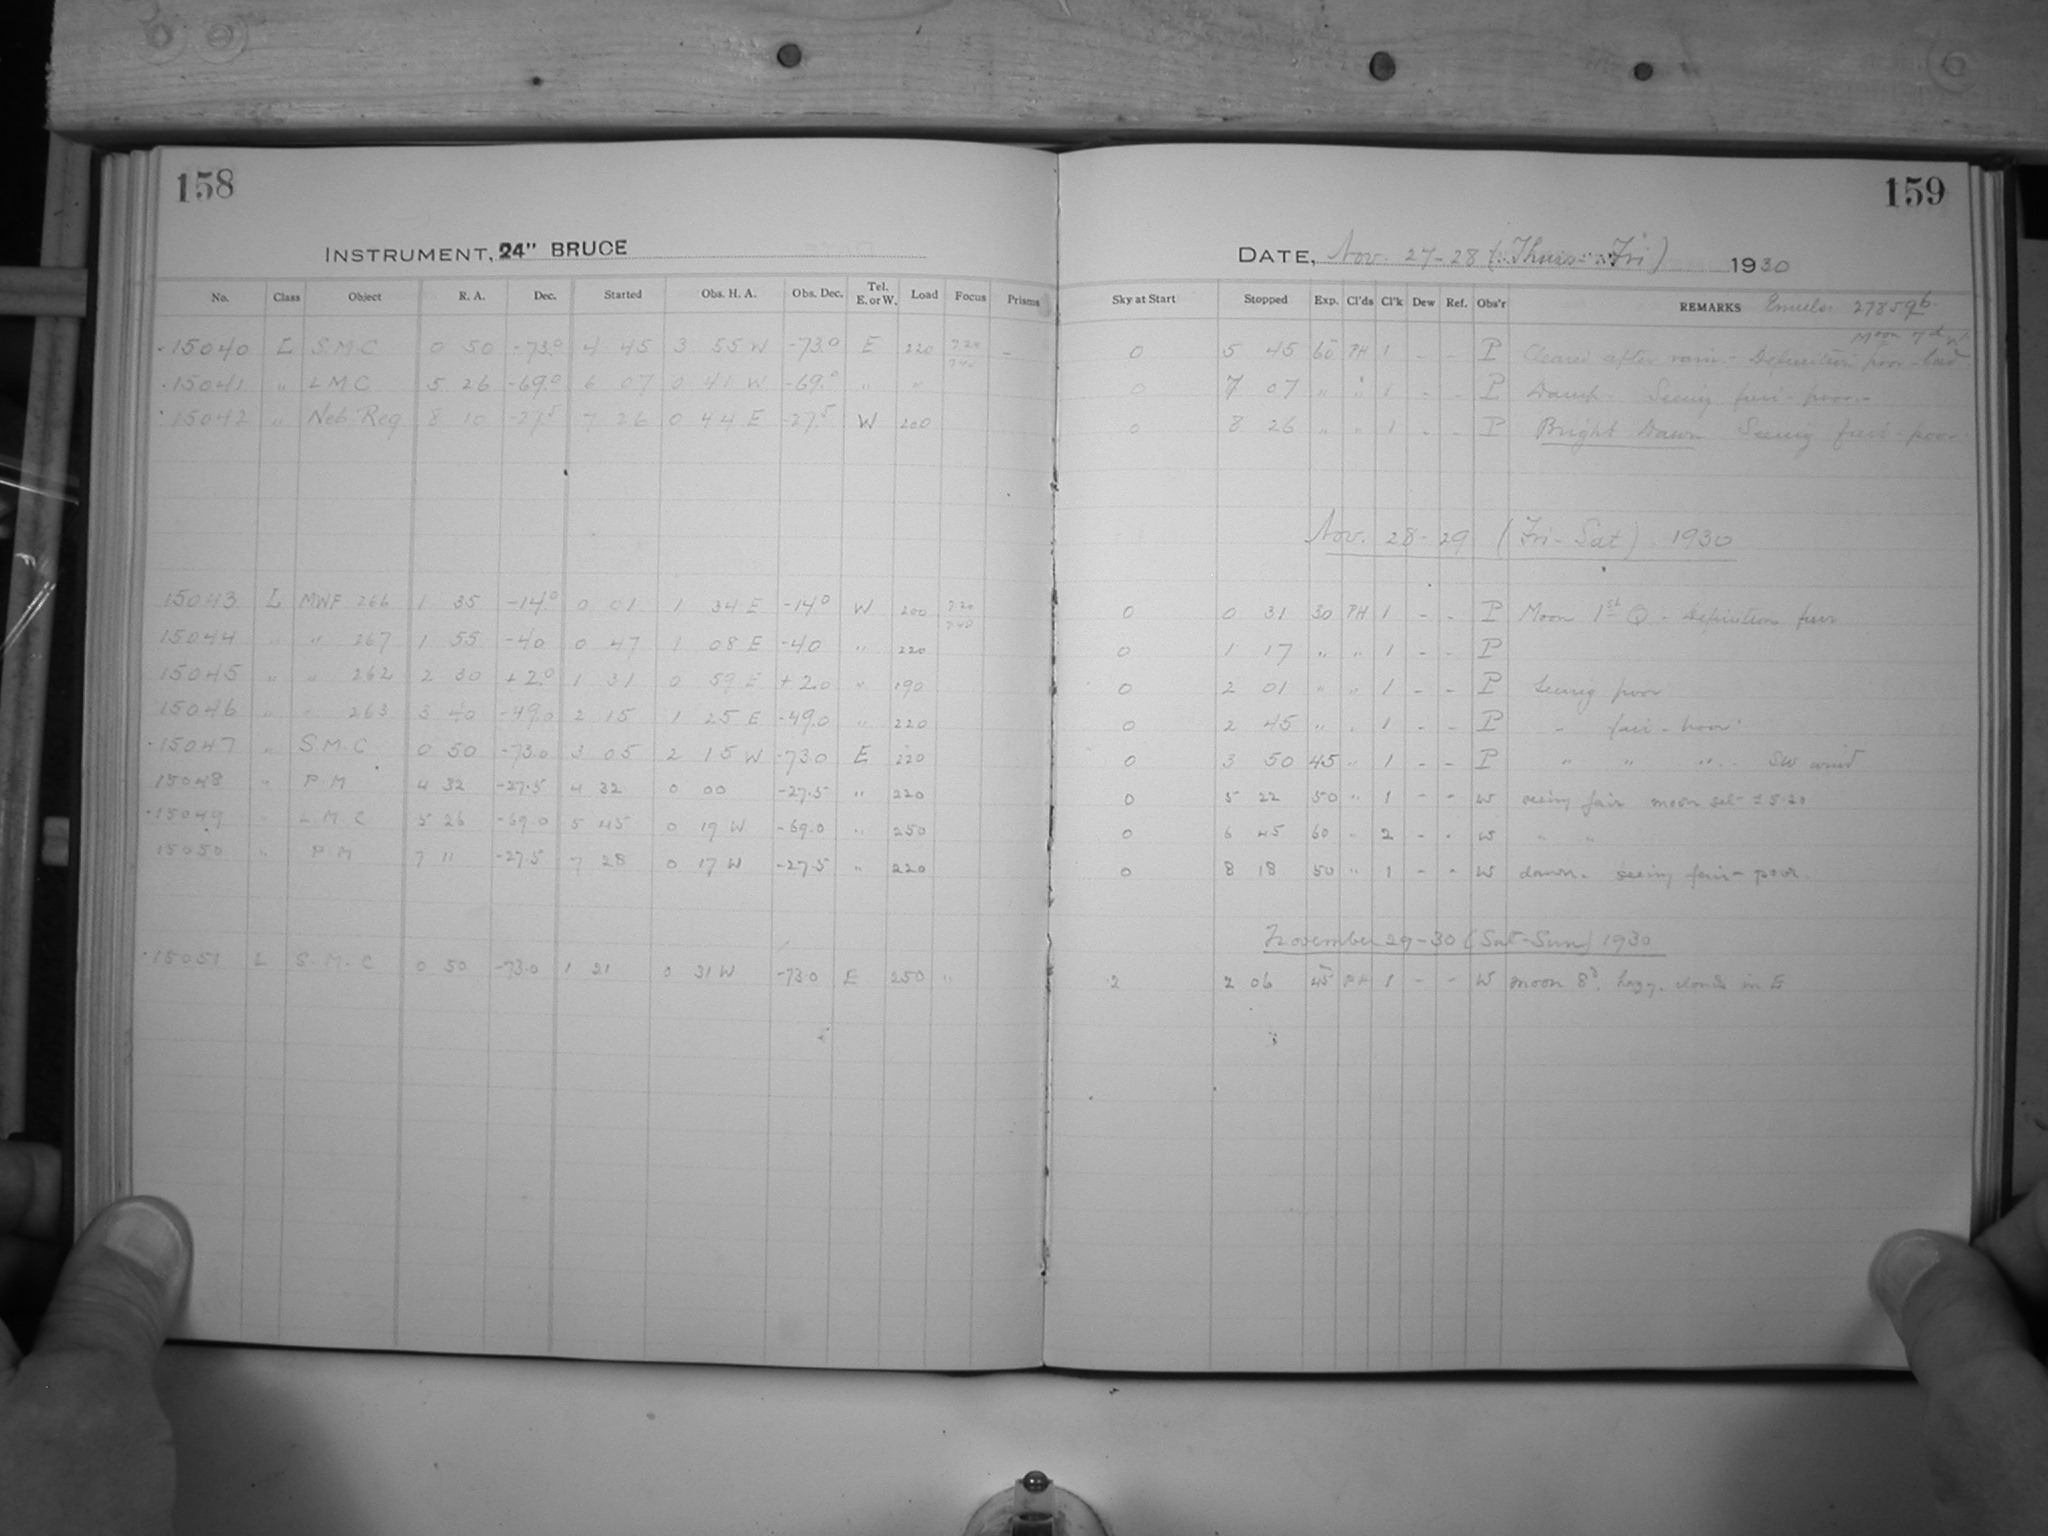 158
INSTRUMENT, 24" BRUCE
No. Class Object R. A. Dec. Started Obs. H. A. Obs. Dec. Tel. E. or W. Load Focus Prisms
15040 L S.M.C 0 50 -73.0 4 45 3 55 W -73.0 E 220 7.20 7.40 -
15041 " L M C 5 26 -69.0 6 07 0 41 W -69.0 " "
15042 " Neb Reg 8 10 -27.5 7 26 0 44 E -27.5 W 200
15043 L MWF 266 1 35 -14.0 0 01 1 34 E -14.0 W 200 7.20 7.40
15044 " " 267 1 55 -40 0 47 1 08 E -40 " 220
15045 " " 262 2 30 +2.0 1 31 0 59 E +2.0 " 190
15046 " " 263 3 40 -49.0 2 15 1 25 E -49.0 " 220
15047 " S.M.C 0 50 -73.0 3 05 2 15 W -73.0 E 220
15048 " P M 4 32 -27.5 4 32 0 00 -27.5 " 220
15049 " L M C 5 26 -69.0 5 45 0 19 W -69.0 " 250
15050 " P M 7 11 -27.5 7 28 0 17 W -27.5 " 220
15051 L S.M.C 0 50 -73.0 1 21 0 31 W -73.0 E 250 "
159
DATE, Nov. 27-28 (Thurs-Fri) 1930
Sky at Start Stopped Exp. Cl'ds Cl'k Dew Ref. Obs'r REMARKS Emuls. 27859b
Moon 7d
0 5 45 60 PH 1 - - P Cleared after rain - Definition poor - bad
0 7 07 " " 1 - - P Damp. Seeing fair - poor -
0 8 26 " " 1 - - P Bright Dawn Seeing fair - poor
Nov. 28-29 (Fri-Sat) 1930
0 0 31 30 PH 1 - - P Moon 1st Q - Definition fair
0 1 17 " " 1 - - P
0 2 01 " " 1 - - P Seeing poor
0 2 45 " " 1 - - P " fair - poor
0 3 50 45 " 1 - - P " " " SW wind
0 5 22 50 " 1 - - W seeing fair moon set ± 5:20
0 6 45 60 " 2 - - W " "
0 8 18 50 " 1 - - W dawn. seeing fair - poor.
November 29-30 (Sat-Sun) 1930
2 2 06 45 PH 1 - - W moon 8d, hazy, clouds in E